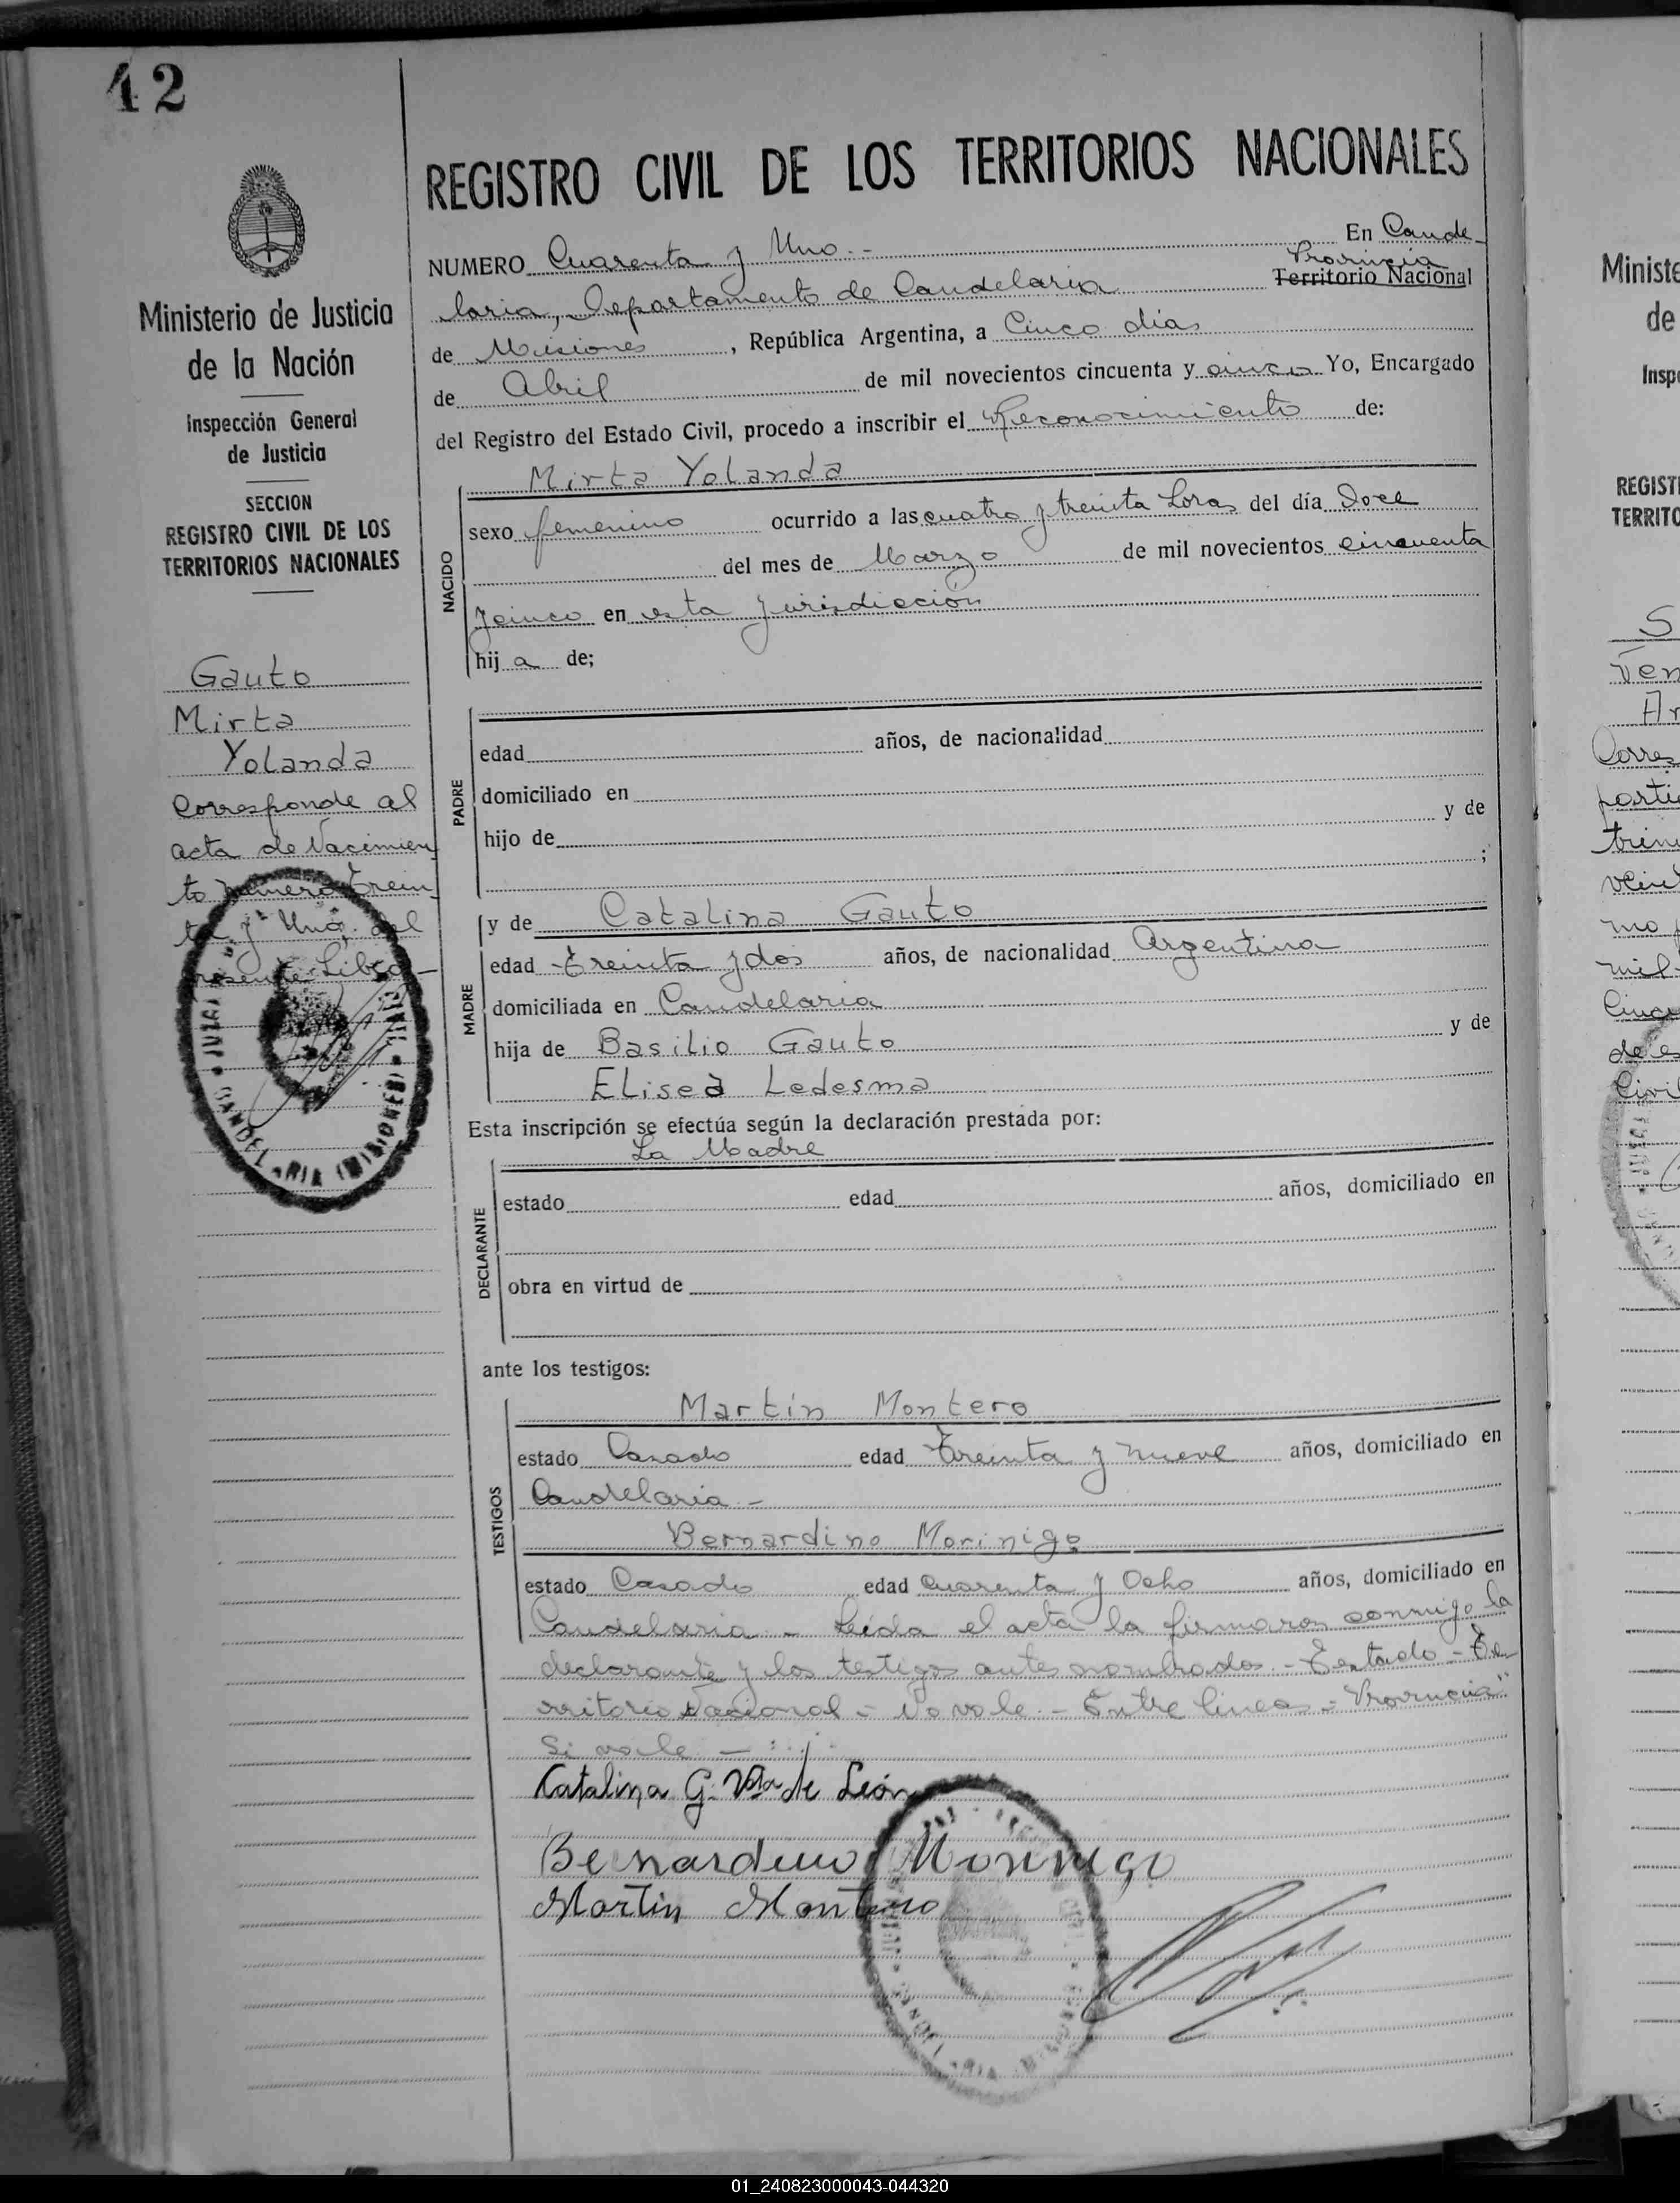 42
Ministerio de Justicia
de la Nación
Inspección General
de Justicia
SECCION
REGISTRO CIVIL DE LOS
TERRITORIOS NACIONALES
Gauto
Mirta
Yolanda
Corresponde al
acta de Nacimien
to número trein
ta y Uno del
presente Libro
REGISTRO CIVIL DE LOS TERRITORIOS NACIONALES
NUMERO Cuarenta y Uno.- En Cande-
Provincia
laria, Departamento de Candelaria Territorio Nacional
de Misiones, República Argentina, a Cinco dias
de Abril de mil novecientos cincuenta y cinco Yo, Encargado
del Registro del Estado Civil, procedo a inscribir el Reconocimiento de:
Mirta Yolanda
NACIDO
sexo femenino ocurrido a las cuatro y treinta horas del día Doce
del mes de Marzo de mil novecientos cincuenta
y cinco en esta jurisdicción
hija de;
PADRE
edad años, de nacionalidad
domiciliado en
hijo de y de
;
MADRE
y de Catalina Gauto
edad treinta y dos años, de nacionalidad Argentina
domiciliada en Candelaria
hija de Basilio Gauto y de
Elisea Ledesma
Esta inscripción se efectúa según la declaración prestada por:
La Madre
DECLARANTE
estado edad años, domiciliado en
obra en virtud de
ante los testigos:
TESTIGOS
Martin Montero
estado Casado edad treinta y nueve años, domiciliado en
Candelaria -
Bernardino Morinigo
estado Casado edad Cuarenta y Ocho años, domiciliado en
Candelaria - Leida el acta la firmaron conmigo la
declarante y los testigos antes nombrados.- Testado - Te
rritorio Nacional - No vale.- Entre lineas - "Provincia"
Si vale -
Catalina G. Vda de León
Bernardino Morinigo
Martin Montero
CANDELARIA (MISIONES)
Ministe
de
Inspe
REGISTR
TERRITO
01_240823000043-044320